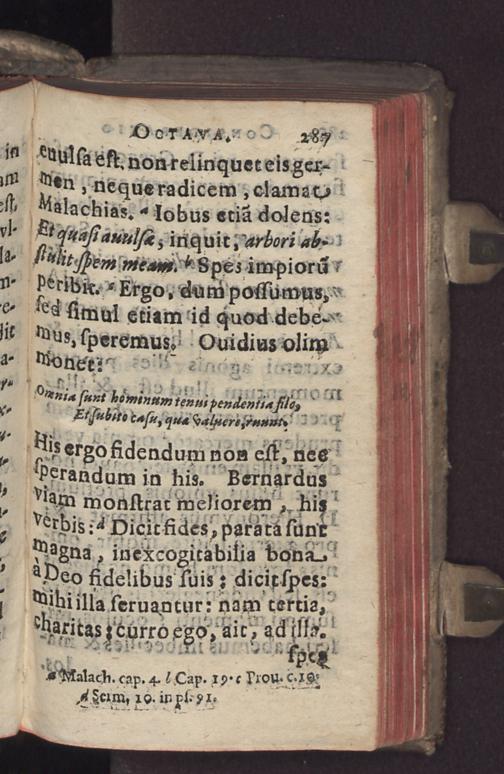 OCTAVA. 287
euulsa est, non relinquet eis ger-
men, neque radicem, clamat
Malachias. a Iobus etiã dolens:
Et quasi auulsæ, inquit, arbori ab-
stulit spem meam. b Spes impiorũ
peribit. c Ergo, dum possumus,
sed simul etiam id quod debe-
mus, speremus. Ouidius olim
monet:
Omnia sunt hominum tenui pendentia filo,
Et subito casu, quæ valuere, ruunt.
His ergo fidendum non est, nec
sperandum in his. Bernardus
viam monstrat meliorem, his
verbis: d Dicit fides, parata sunt
magna, inexcogitabilia bona
à Deo fidelibus suis; dicit spes:
mihi illa seruantur: nam tertia,
charitas; curro ego, ait, ad illa.
spes
a Malach. cap. 4. b Cap. 19. c Prou. c. 10.
d Serm. 10. in ps. 91.